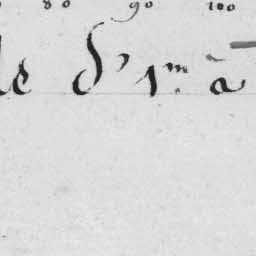 80 90 100
de d' 1.m à